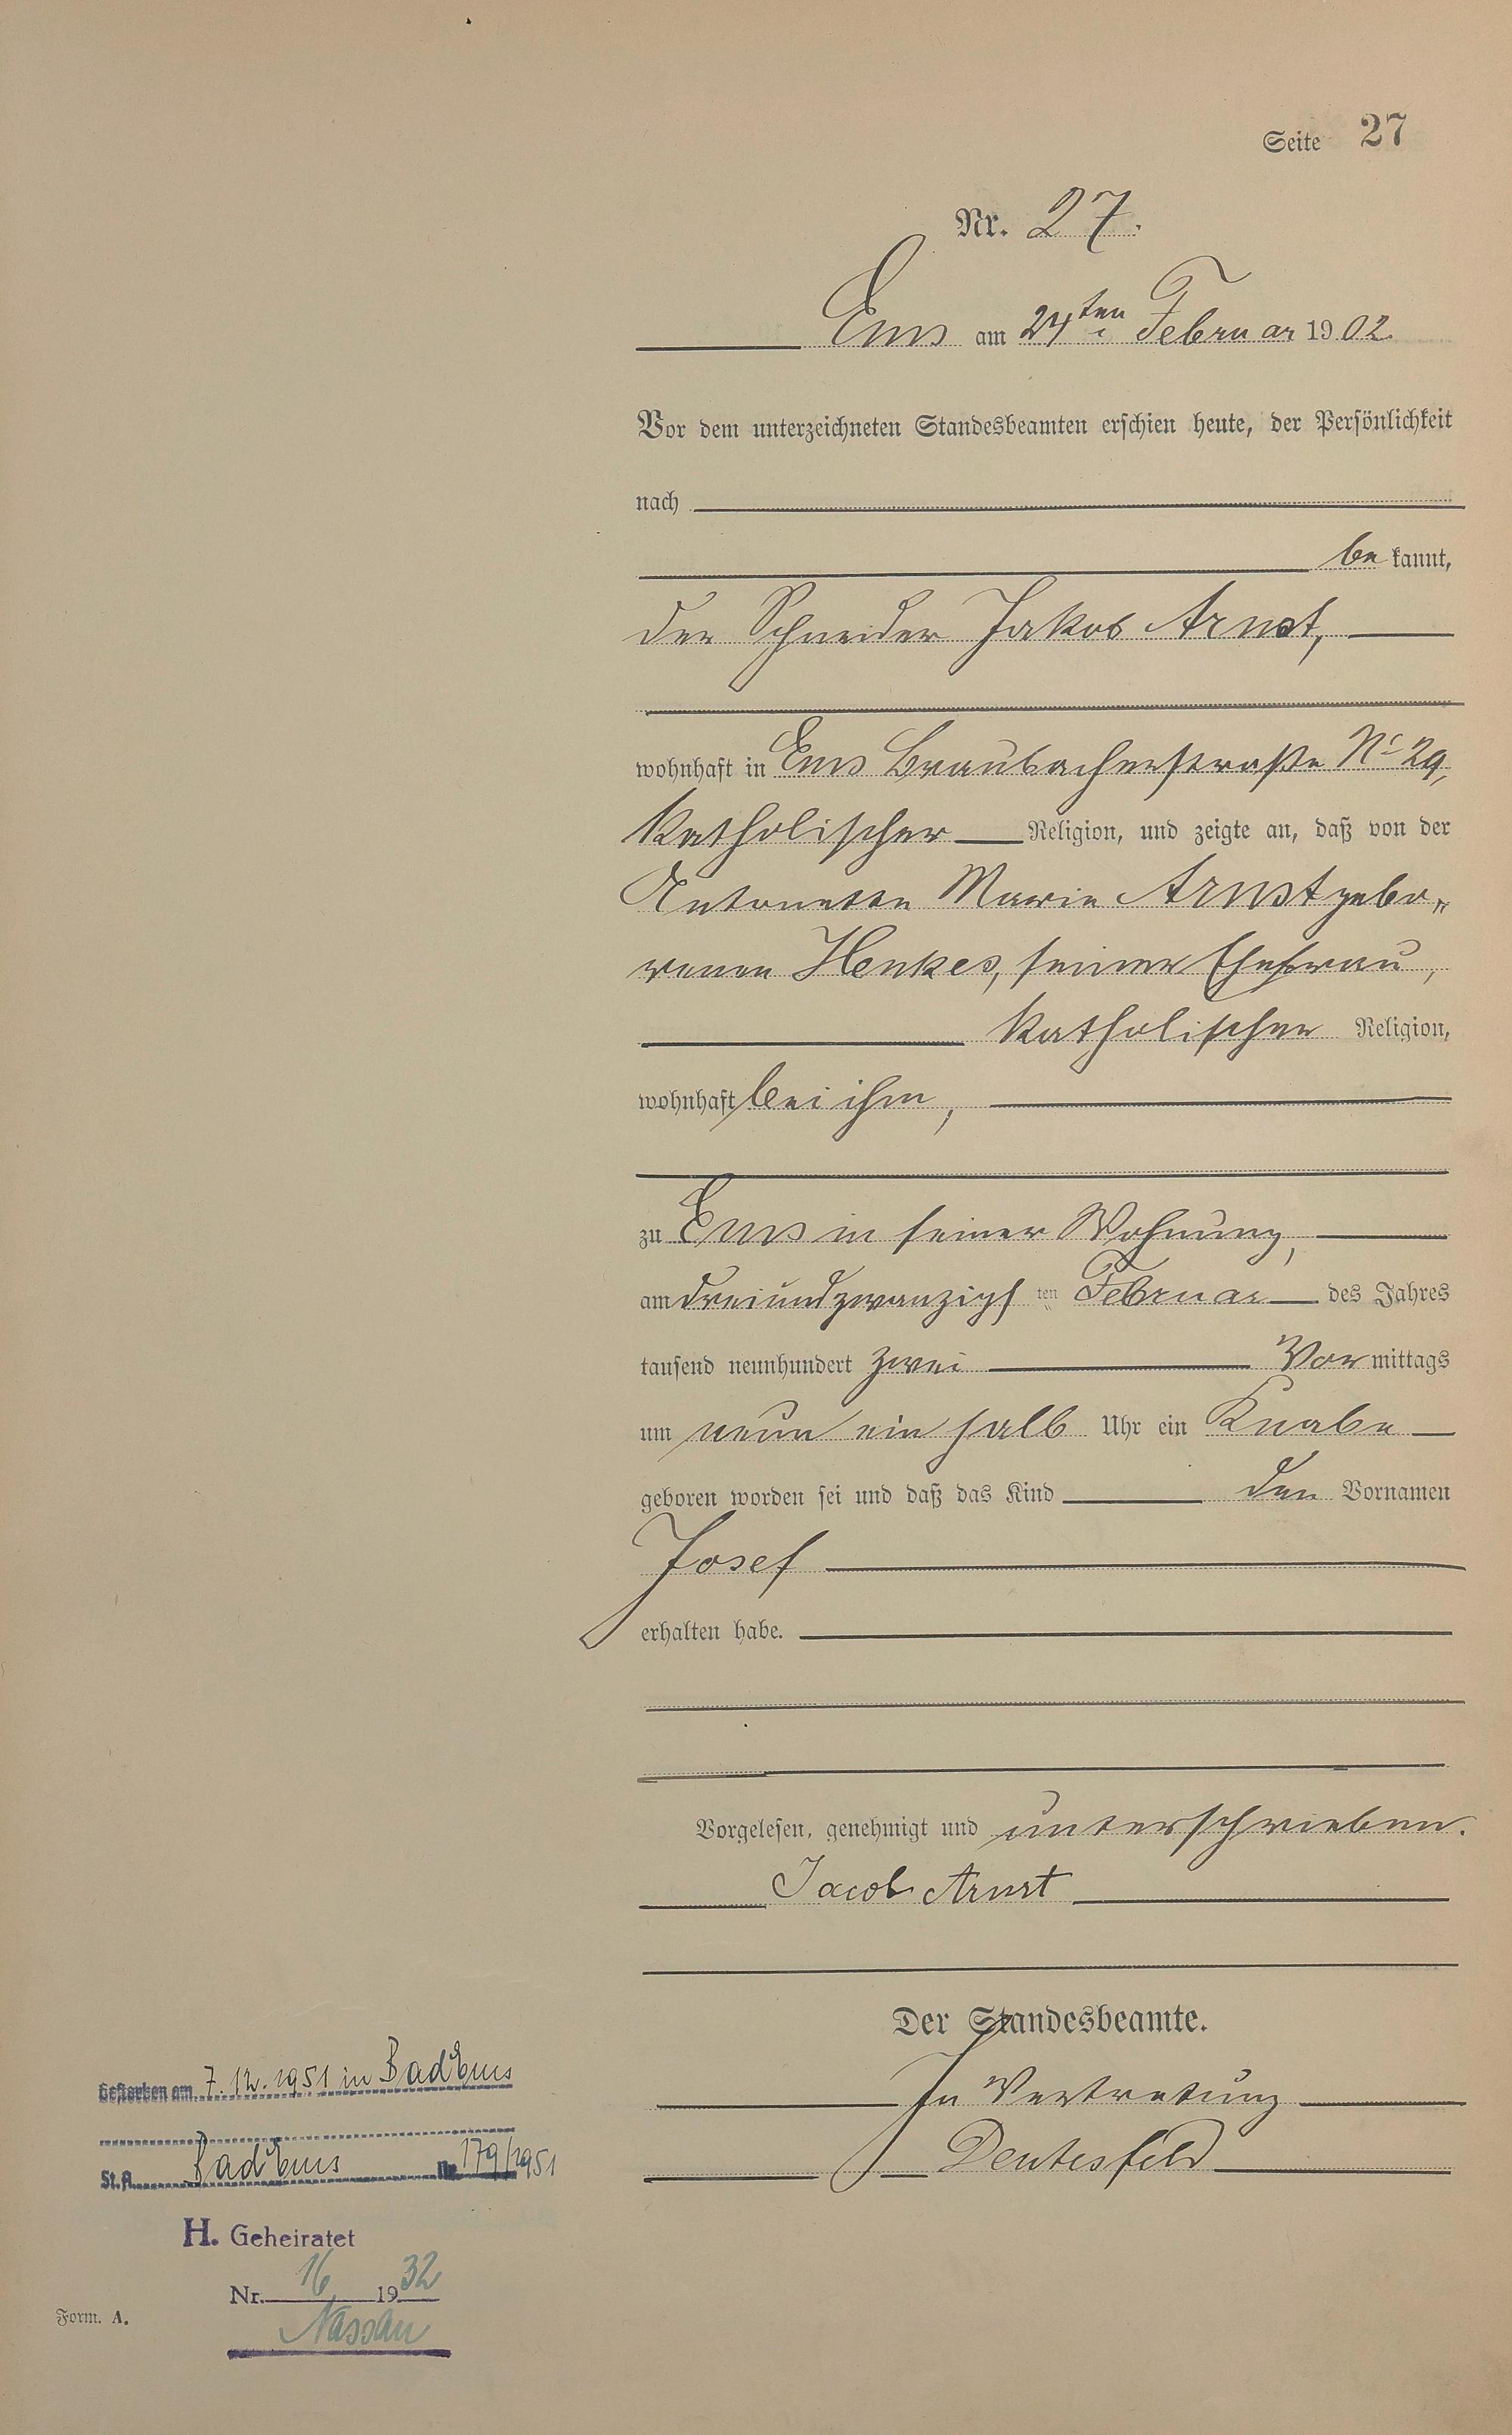 Seite 27
Nr. 27.
Ems am 24ten Februar 1902
Vor dem unterzeichneten Standesbeamten erschien heute, der Persönlichkeit
nach
be kannt,
der Schneider Jakob Arnst,
wohnhaft in Ems Braubacherstraße No 29,
katholischer Religion, und zeigte an, daß von der
Antonette Marie Arnst gebo„
renen Henkes, seiner Ehefrau,
katholischer Religion,
wohnhaft bei ihm,
zu Ems in seiner Wohnung,
am dreiundzwanzigs ten Februar des Jahres
tausend neunhundert zwei Vor mittags
um neun ein halb Uhr ein Knabe
geboren worden sei und daß das Kind den Vornamen
Josef
erhalten habe.
Vorgelesen, genehmigt und unterschrieben.
Jacob Arnst
Der Standesbeamte.
In Vertretung
Deutesfeld
Gestorben am 7.12.1951 in Bad Ems
St.A. Bad Ems Nr. 179/1951
H. Geheiratet
Nr. 16 1932
Nassau
Form. A.